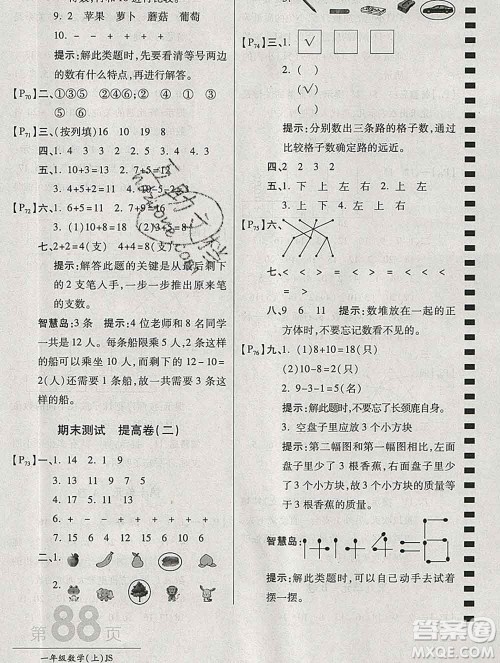 9. 2 苹果 萝卜 蘑菇 葡萄
10. - + + + + +
提示：解此类题时，首先要看清等号两边
的数有什么特点，再进行解答。
【P70】二、⑤③⑤④⑥;②①②①②④
⑤⑥
【P71】三、(按列填)16 10 19 8
四、1. 4 3 2. 4 4 3
五、1. 10+3=13 2. 7+5=12
3. 4+5+2=11
【P72】六、1. 6+5=11 2. 7+2=9
3. (1)10+4=14 (2)
七、2+2=4(支) 4+4=8(支)
提示：解答此题的关键是从最后剩下
的 2 支笔人手，一步一步推出原来笔
的支数。
智慧岛：3 条 提示：4 位老师和 8 名同学
一共是 12 人。每条船限乘 5 人，这样
的船可以乘坐 10 人，还剩下 12-10=
2(人)还需要 1 条船，故至少要租 3 条
船。
期末测试 提高卷(二)
【P73】一、1. 14 2. 1 9
2. 15 5 13 3. 13 19
4. 16 4 5. 7
6. - + + + + +
二、1.
2.
第88页
一年级数学(上)JS
【P74】三、1. √
2. ( )
(√)
( )
提示：分别数出三条路的格子数，通
过比较格子数确定路的远近。
四、2 2 3 2
五、1. 下 上 左 右
2. 上 下 左 右 右
【P75】六、
七、< < > < < >
<
八、9 6 11 提示：数堆放在一起的正
方体时，不要忘记数看不见的。
【P76】九、1. (1)8+10=18(只)
(2)10-8=2(只)
2. 9-3-1=5(只)
提示：解题时，不要忘了长颈鹿自己。
3. 空盘子里应放 3 个小方块
提示：第二幅图和第一幅图相比，左
面盘子里少了 3 根香蕉，所以右面盘
子里少了 3 个小方块，故 3 个小方块
的质量等于 3 根香蕉的质量。
智慧岛：
提示：此题可以自己动手去试着
摆一摆。
答案圈
MXQE.COM